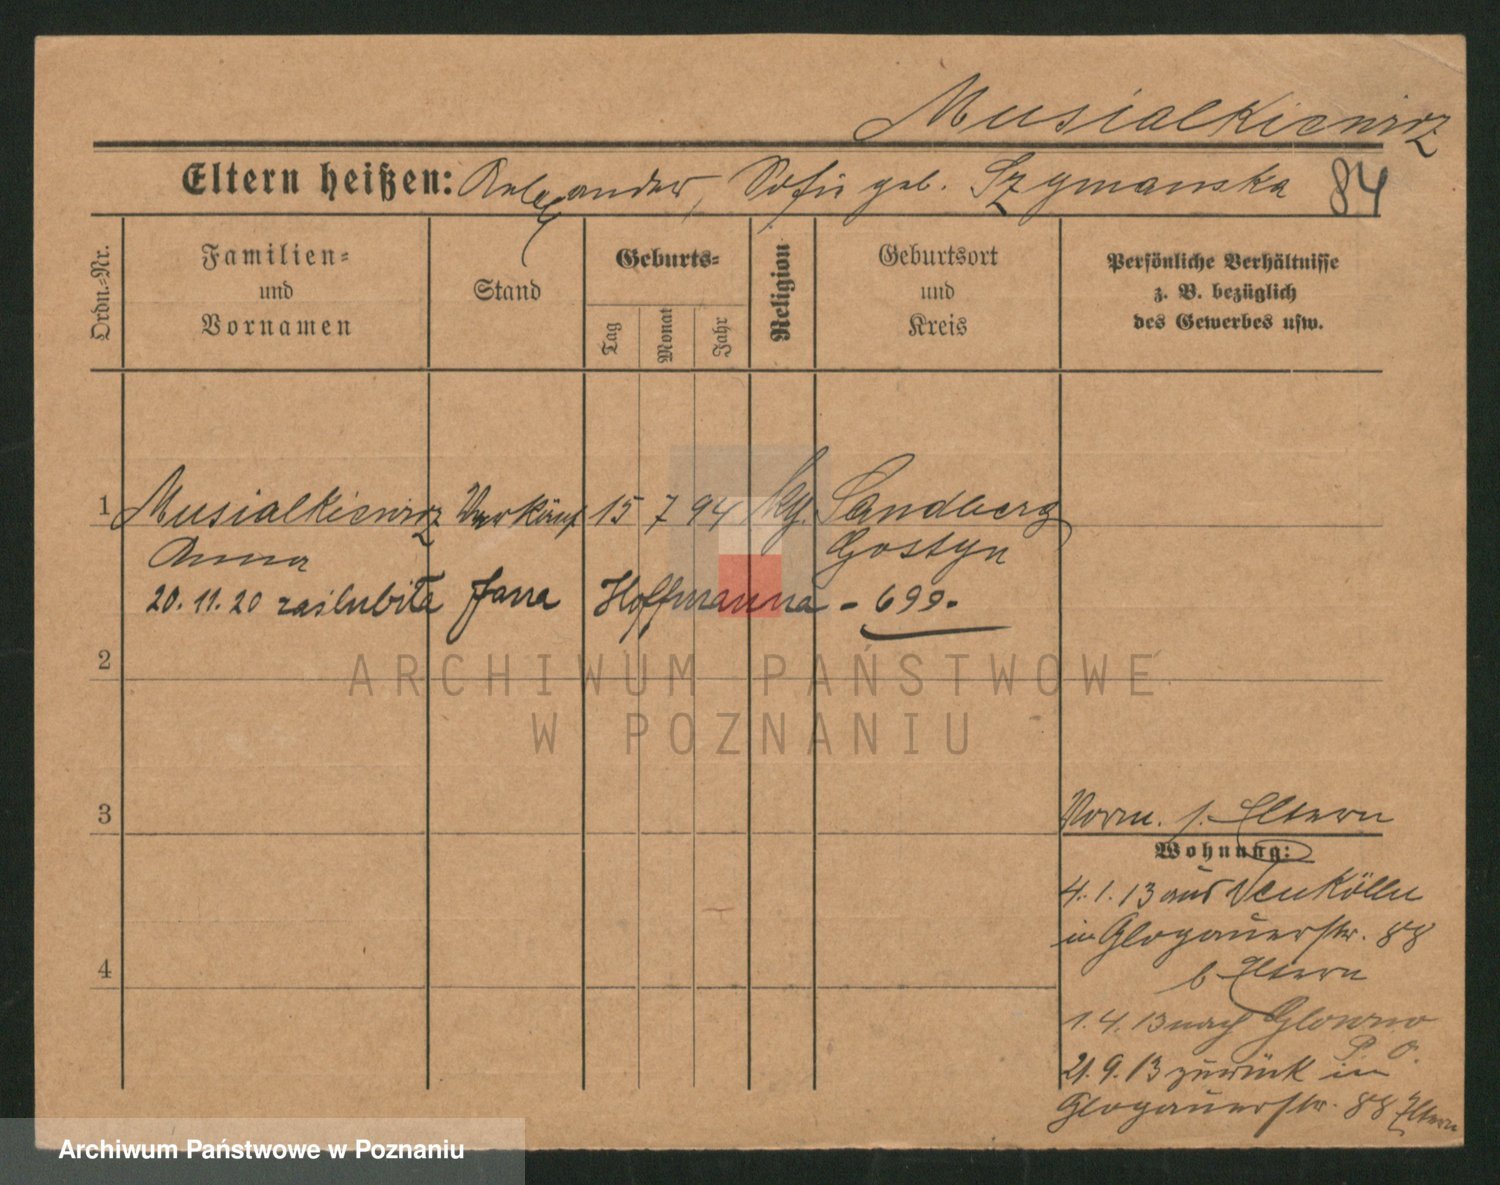 Musialkiewicz
Eltern heißen: Alexander, Sofie geb. Szymanska 84
Ordn.-Nr.
Familien-
und
Vornamen
Stand
Geburts-
Tag
Monat
Jahr
Religion
Geburtsort
und
Kreis
Persönliche Verhältnisse
z. B. bezüglich
des Gewerbes usw.
1 Musialkiewicz Verkäuf 15 7 94 kg. Sandberg
Anna Gostyn
20.11.20 zaślubiła Jana Hoffmanna - 699.-
2
ARCHIWUM PAŃSTWOWE
W POZNANIU
3
Vorm. s. Eltern
Wohnung:
4.1.13 aus Neukölln
in Glogauerstr. 88
b. Eltern
4
1.4.13 nach Glowno
P. O.
21.9.13 zurück in
Glogauerstr. 88 Eltern
Archiwum Państwowe w Poznaniu